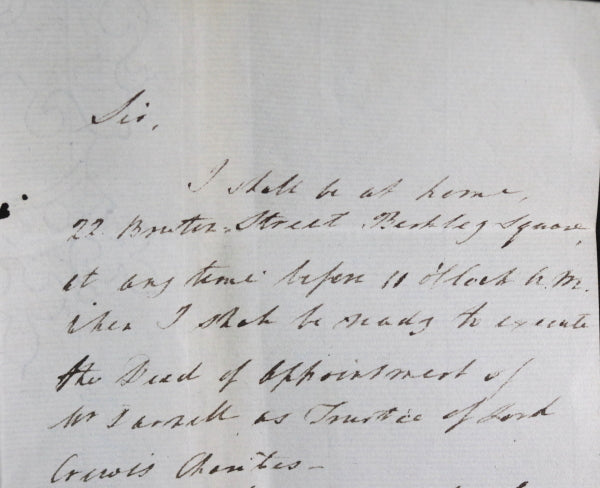 Sir,
I shall be at home,
22 Bruton Street Berkley Square,
at any time before 11 o'Clock A.M.
when I shall be ready to execute
the Deed of Appointment of
Mr Darnell as Trustee of Lord
Crewe's Charities –